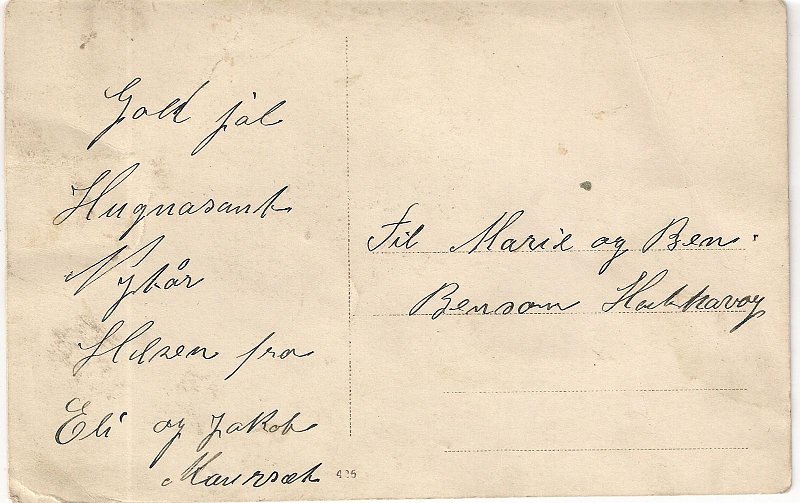 Godt jol
Hugnasamt
Nyår
Helsen fra
Eli og Jakob
Maursæt
435
Til Marie og Ben.
Benson